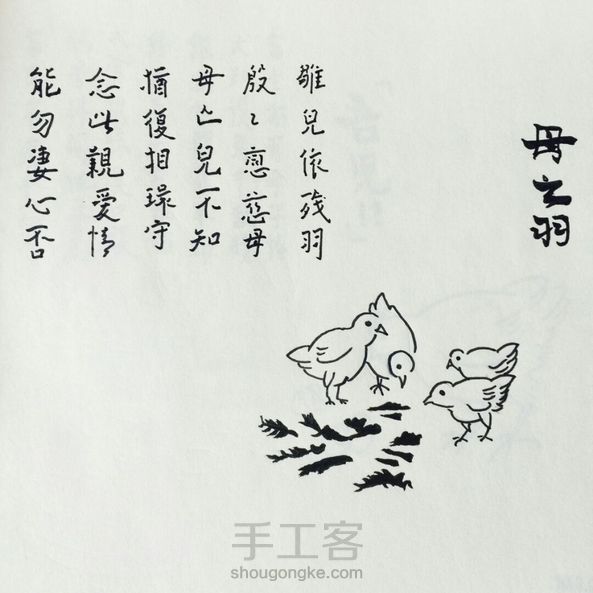 母之羽
雛兒依殘羽
殷〻戀慈母
母亡兒不知
猶復相環守
念此親愛情
能勿凄心否
手工客
shougongke.com